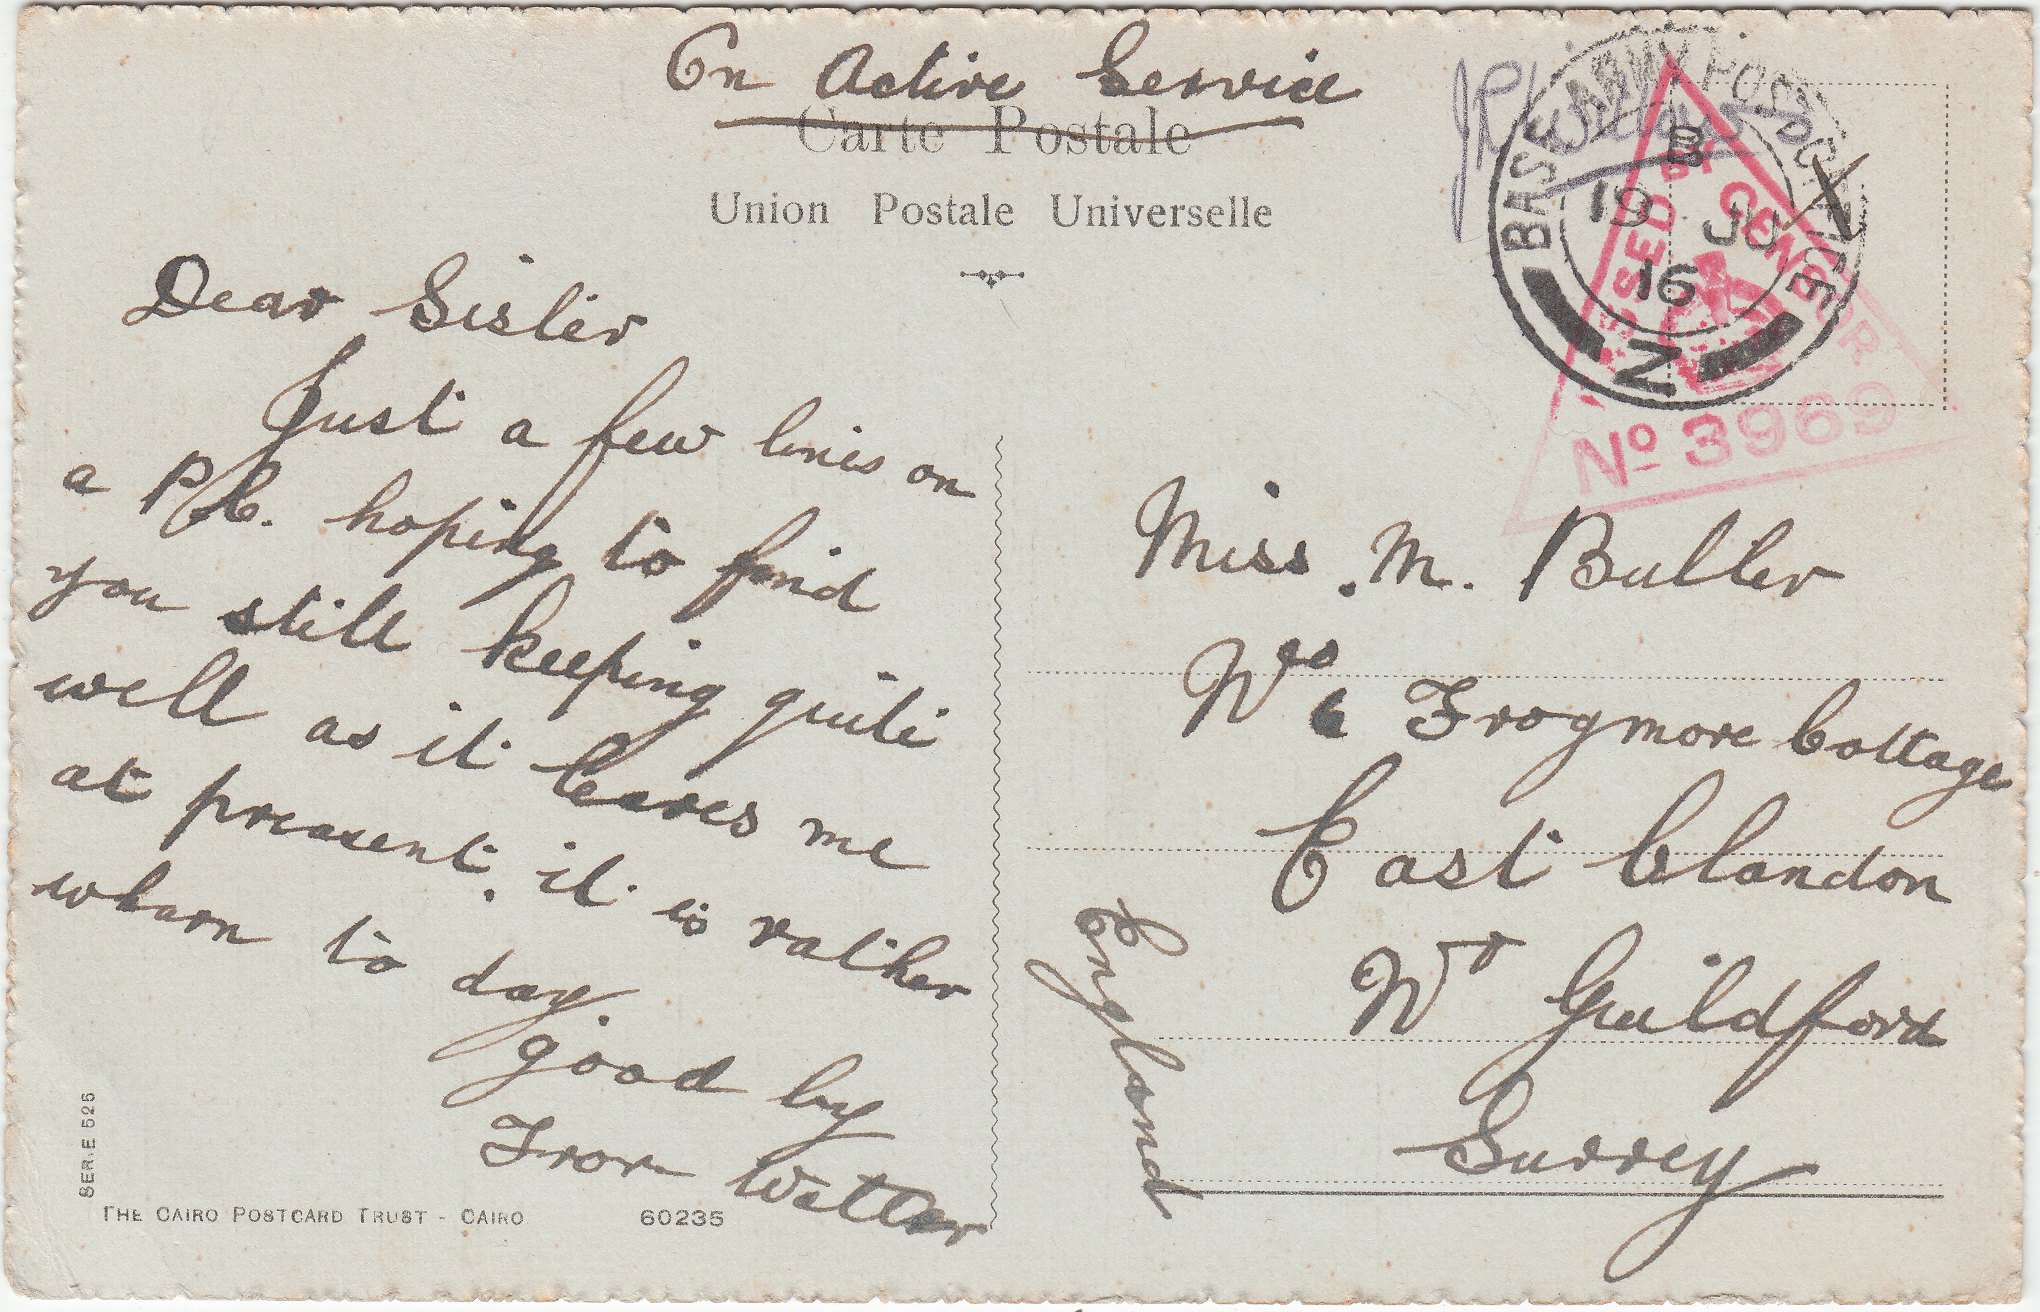 On Active Service
Carte Postale
Union Postale Universelle
Dear Sister
Just a few lines on
a P.C. hoping to find
you still keeping quite
well as it leaves me
at preasent. it is rather
wharn to day
good by
From
BASE ARMY POST OFFICE
B
19 JU
16
Z
PASSED BY CENSOR
No 3969
Miss. M. Butler
Frogmore Cottage
East Clandon
Nr Guildford
Surrey
England
SER. E 525
THE CAIRO POSTCARD TRUST - CAIRO
60235